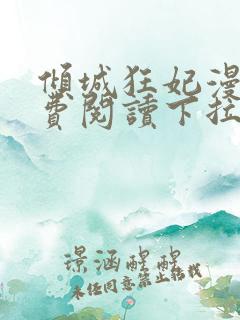 傾城狂妃漫
費閱讀下拉
璟涵醒醒
未经同意禁止转载